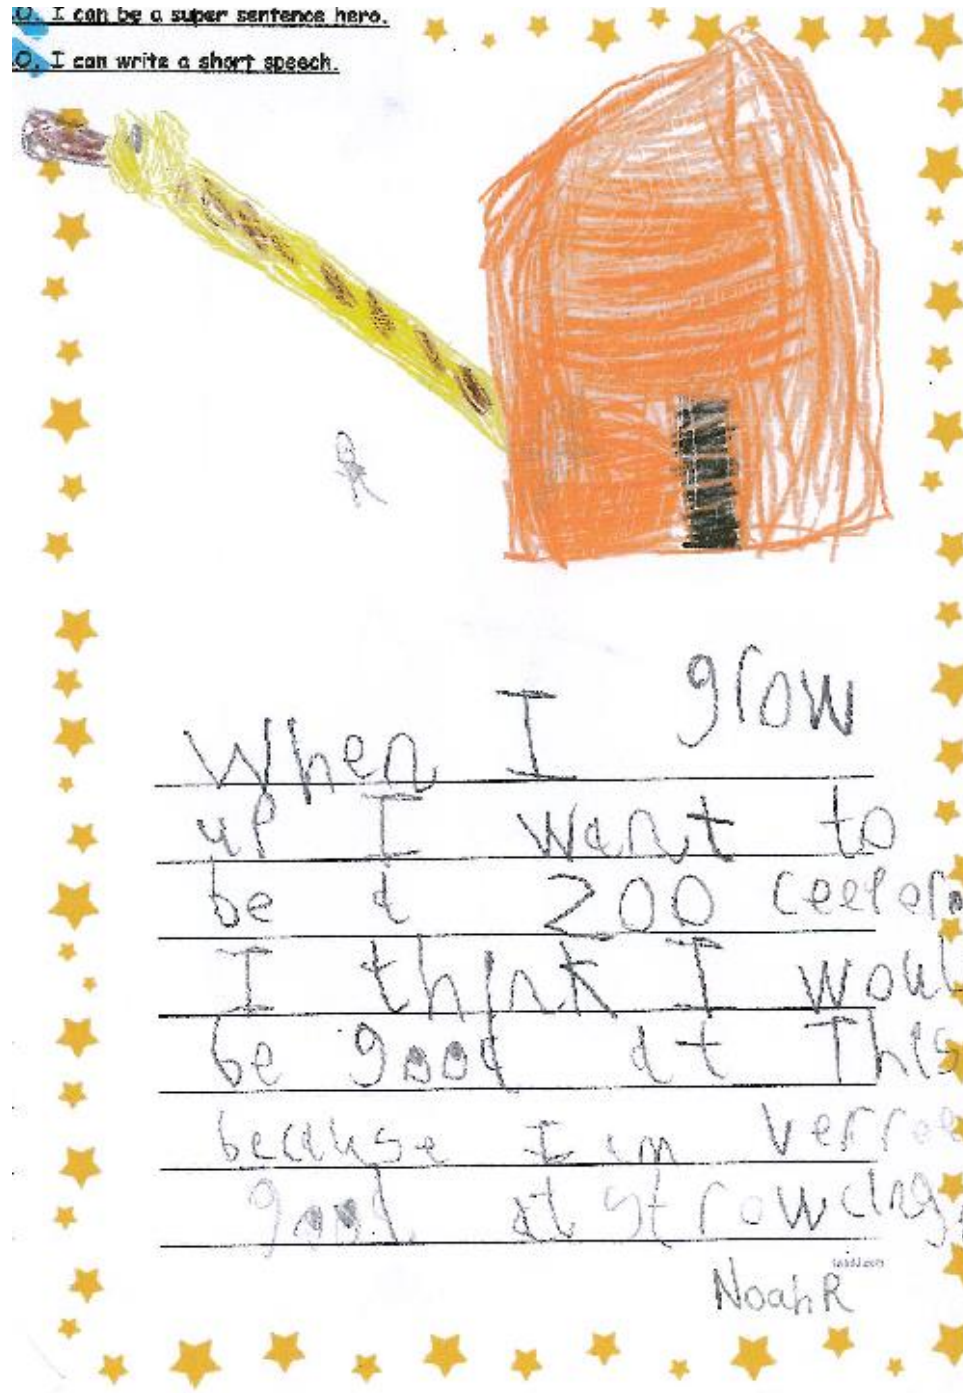 O. I can be a super sentence hero.
O. I can write a short speech.
When I grow
up I want to
be a zoo ceeper
I think I woul
be good at This
because I am verroe
good at strowcing.
NoahR